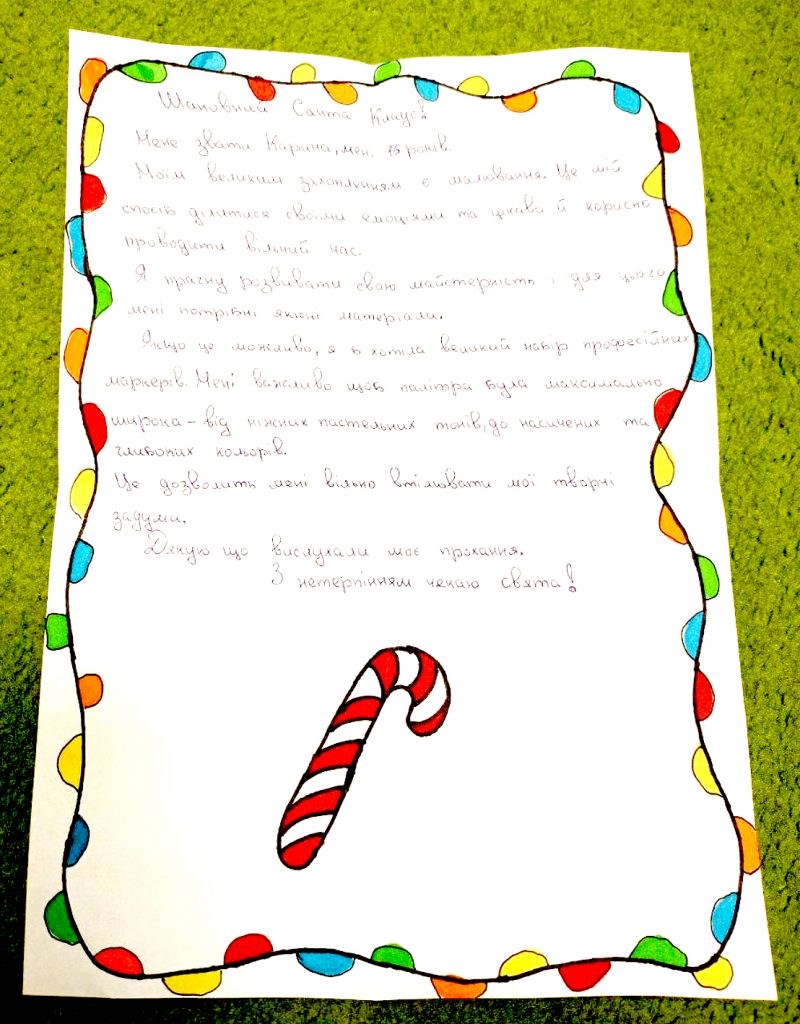 Шановний Санта Клаус!
Мене звати Карина, мені 15 років.
Моїм великим захопленням є малювання. Це мій
спосіб ділитися своїми емоціями та цікаво й корисно
проводити вільний час.
Я прагну розвивати свою майстерність і для цього
мені потрібні якісні матеріали.
Якщо це можливо, я б хотіла великий набір професійних
маркерів. Мені важливо щоб палітра була максимально
широка – від ніжних пастельних тонів, до насичених та
глибоких кольорів.
Це дозволить мені вільно втілювати мої творчі
задуми.
Дякую що вислухали моє прохання.
З нетерпінням чекаю свята!